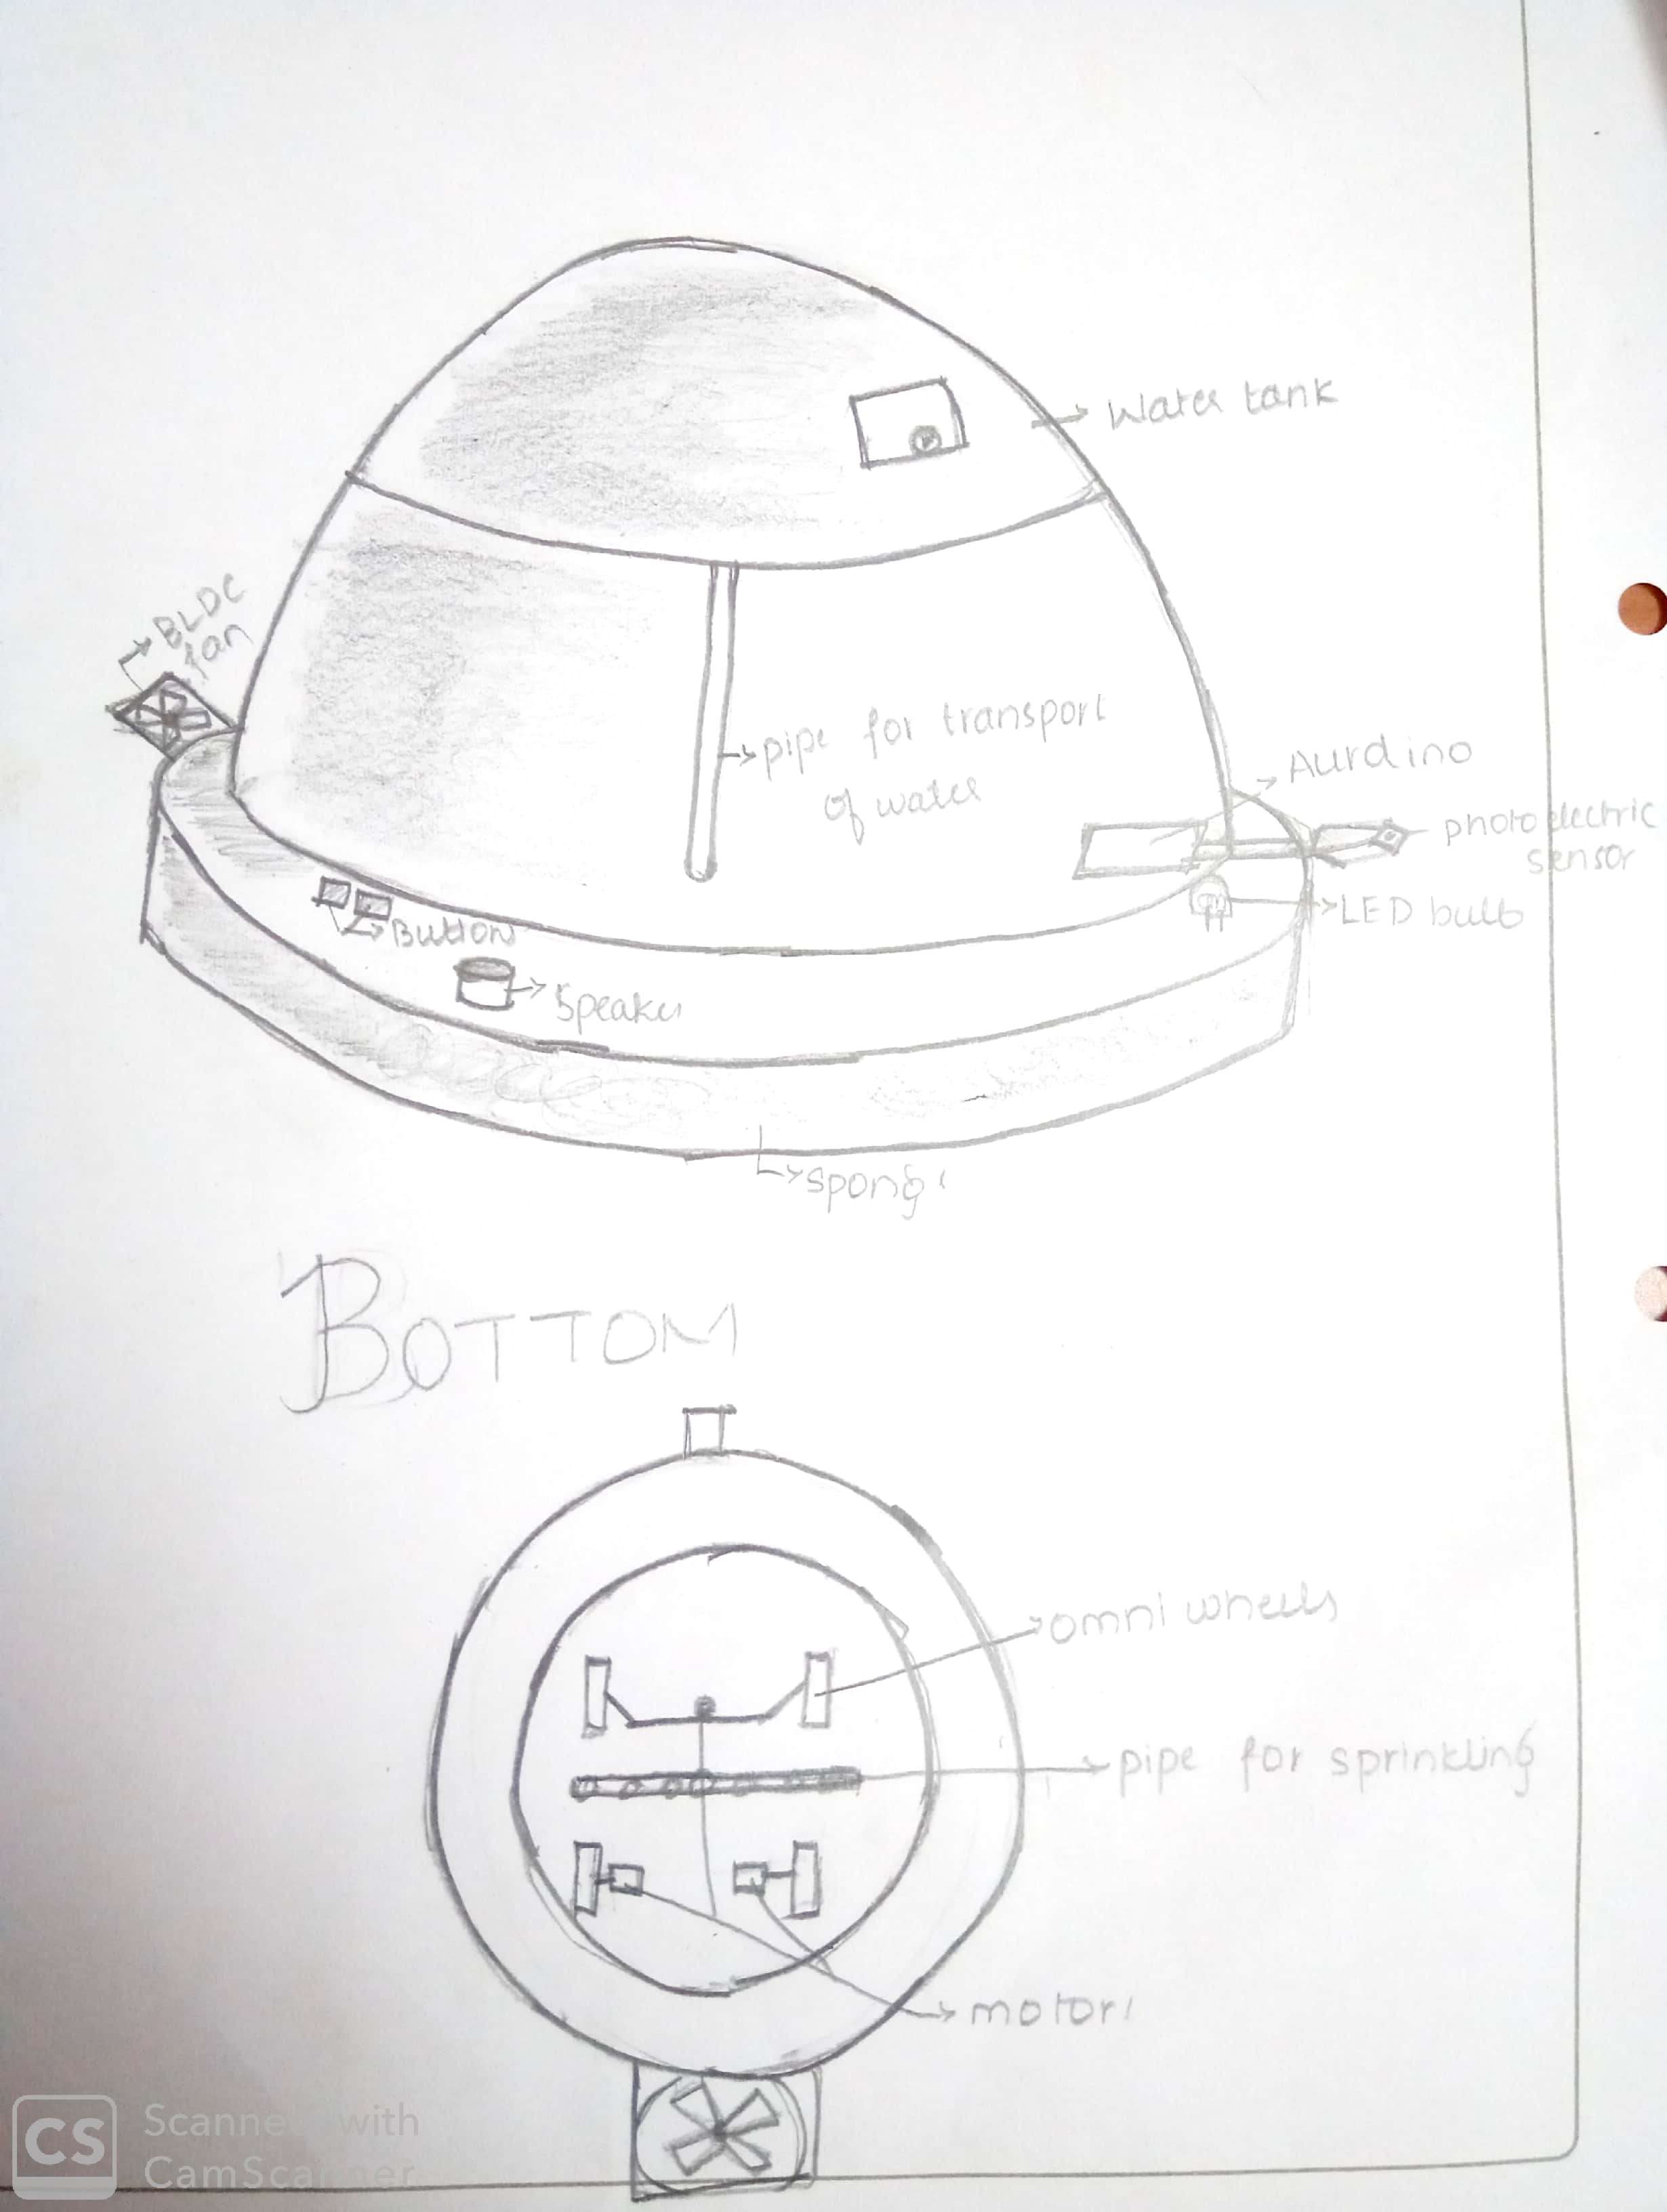 Water tank
BLDC
fan
pipe for transport
of water
Aurdino
photoelectric
sensor
LED bulb
Button
Speaker
sponge
BOTTOM
omni wheels
pipe for sprinkling
motors
CS
Scanned with
CamScanner